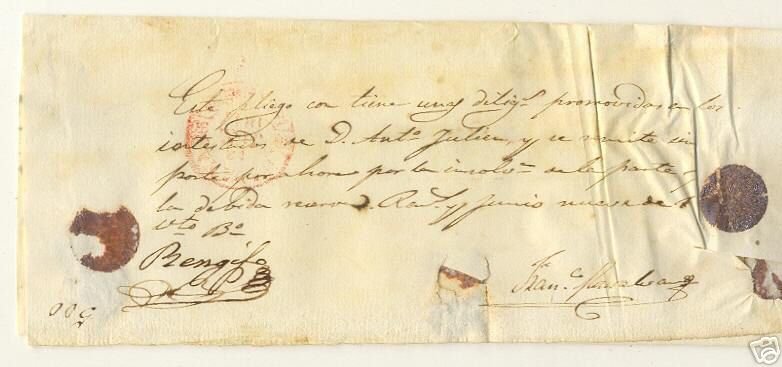 Este pliego con tiene unas diligs. promovidas en los
intestados de D. Anto. Julien, y se remite sin
porte por ahora por la insolva. de la parte y
la debida reserva. y Junio nueve de
Vto Bo
Rengifo
Franco.